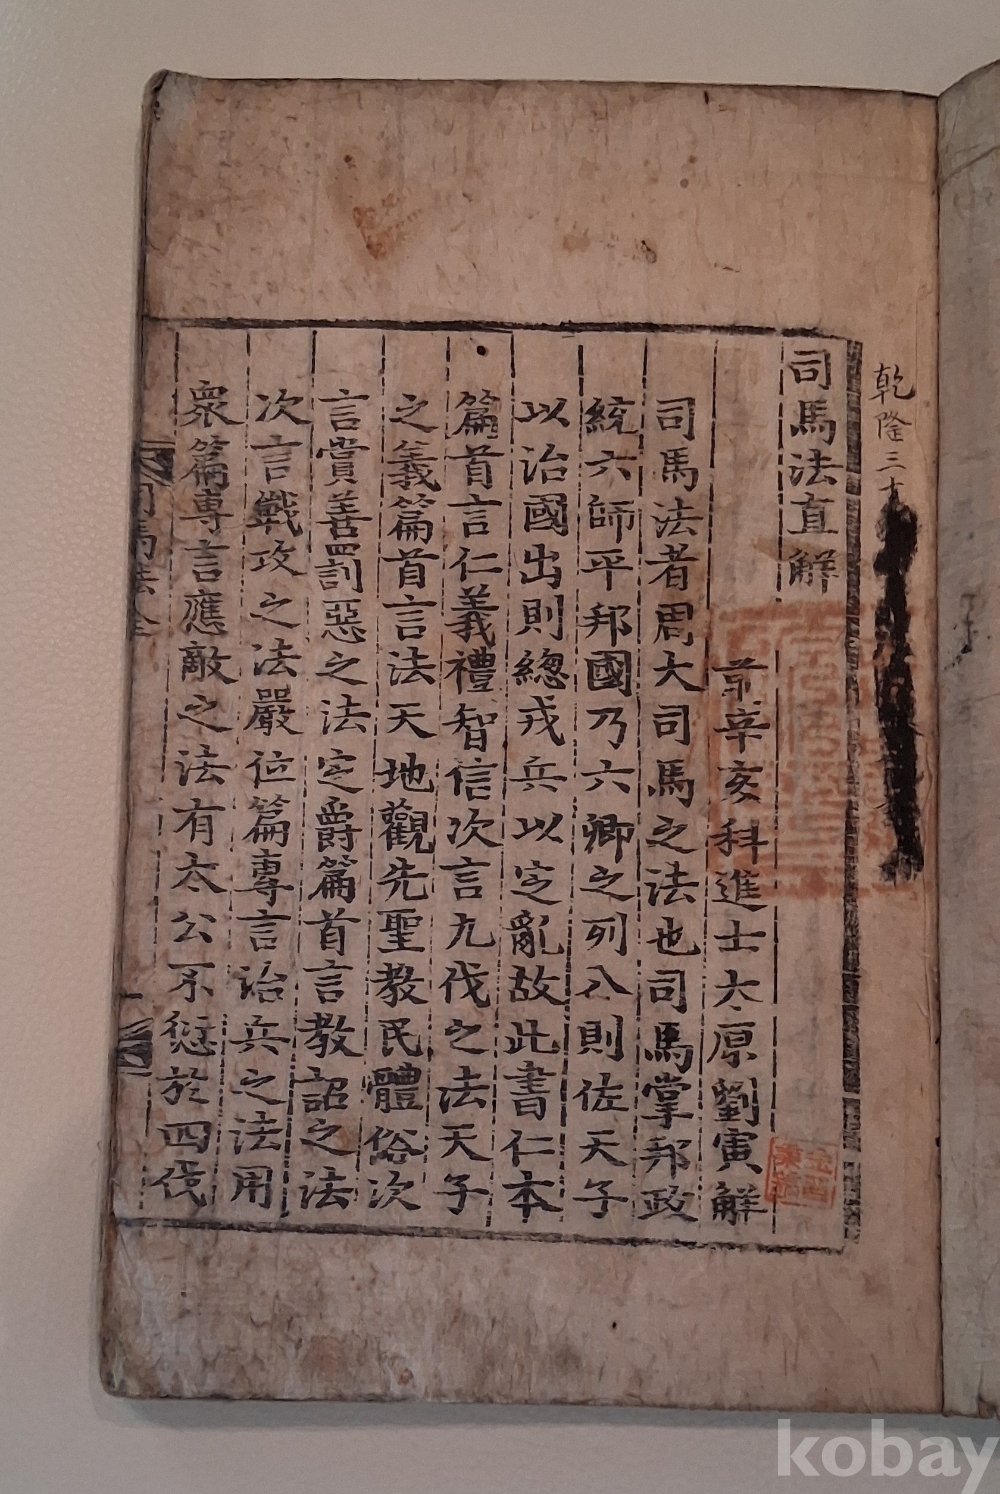 乾隆三十
司馬法直解
前辛亥科進士太原劉寅解
司馬法者周大司馬之法也司馬掌邦政
統六師平邦國乃六卿之列入則佐天子
以治國出則總戎兵以定亂故此書仁本
篇首言仁義禮智信次言九伐之法天子
之義篇首言法天地觀先聖教民體俗次
言賞善罰惡之法定爵篇首言教詔之法
次言戰攻之法嚴位篇專言治兵之法用
衆篇專言應敵之法有太公不愆於四伐
司馬法全
kobay